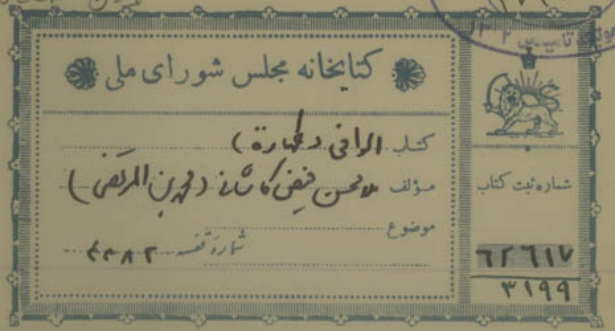 کتابخانه مجلس شورای ملی
کتاب الوافی (طهارة)
مؤلف ملا محسن فیض کاشانی (محمد بن المرتضی)
موضوع
شمارهٔ قفسه ۴۳۸۲
شماره ثبت کتاب
۶۲۶۱۷
۳۱۹۹